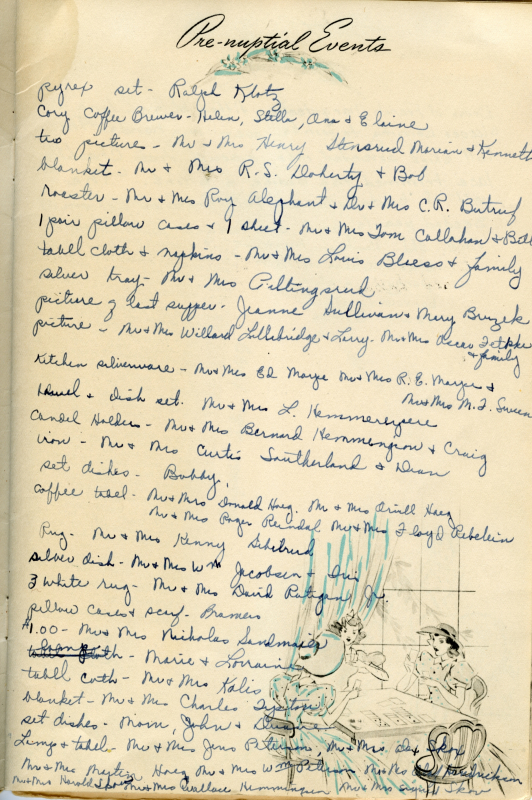 Pre-nuptial Events
pyrex set - Ralph Klotz
Cory Coffee Brewer - Helen, Stella, Ona & Elaine
two pictures - Mr & Mrs Henry Stensrud Marian & Kenneth
blanket - Mr & Mrs R.S. Doherty & Bob
roaster - Mr & Mrs Roy Alephant & Mr & Mrs C.R. Butruf
1 pair pillow cases & 1 sheet - Mr & Mrs Tom Callahan & Bill
tabel cloth & napkins - Mr & Mrs Louis Bleess & family
silver tray - Mr & Mrs
picture of last supper - Jeanne Sullivan & Mary Bruzek
picture - Mr & Mrs Willard Lillebridge & Larry - Mr & Mrs Oscar
& family
Kitchen silverware - Mr & Mrs Ed Marge Mr & Mrs R. E. Marge &
Mr & Mrs M. F.
towel & dish set. Mr & Mrs L.
Candel Holders - Mr & Mrs Bernard Hemmingson & Craig
iron - Mr & Mrs Curtis Southerland & Dean
set dishes - Bobby,
coffee tabel - Mr & Mrs Donald Haeg. Mr & Mrs Orvill Haeg
Mr & Mrs Roger Reindal Mr & Mrs Floyd Rebelein
Rug - Mr & Mrs Kenny
silver dish - Mr & Mrs Wm Jacobsen & Iris
3 white rug - Mr & Mrs David Jr.
pillow cases & scarf - Bramers
$1.00 - Mr & Mrs Nicholas
Marie & Lorraine
tabel coth - Mr & Mrs Kalis
blanket - Mr & Mrs Charles
set dishes - Mom, John &
Lamp & tabel - Mr & Mrs Jens Peterson, Mr & Mrs Skov
Mr & Mrs Martin Haeg Mr & Mrs Wm Peterson Mr & Mrs
Mr & Mrs Harold Skov Mr & Mrs Wallace Hemmingson Mr & Mrs Skov